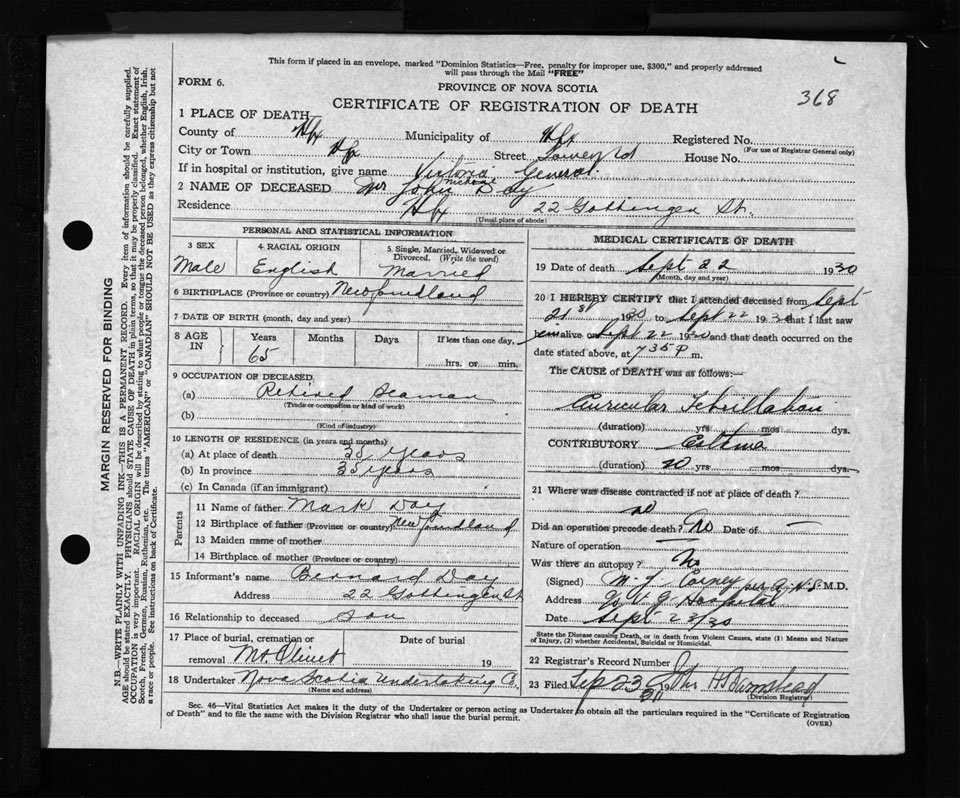 This form if placed in an envelope, marked "Dominion Statistics—Free, penalty for improper use, $300," and properly addressed
will pass through the Mail "FREE"
FORM 6.
PROVINCE OF NOVA SCOTIA
CERTIFICATE OF REGISTRATION OF DEATH
368
1 PLACE OF DEATH
County of Hfx Municipality of Hfx Registered No.
(For use of Registrar General only)
City or Town Hfx Street House No.
If in hospital or institution, give name Victoria General.
2 NAME OF DECEASED John Day
Residence Hfx 22 Gottingen St.
(Usual place of abode)
PERSONAL AND STATISTICAL INFORMATION
3 SEX Male
4 RACIAL ORIGIN English
5 Single, Married, Widowed or Divorced. (Write the word) Married
6 BIRTHPLACE (Province or country) Newfoundland
7 DATE OF BIRTH (month, day and year)
8 AGE IN Years 65 Months Days If less than one day, hrs. or min.
9 OCCUPATION OF DECEASED
(a) Retired Seaman
(Trade or occupation or kind of work)
(b)
(Kind of industry)
10 LENGTH OF RESIDENCE (in years and months)
(a) At place of death 35 years
(b) In province 35 years
(c) In Canada (if an immigrant)
Parents
11 Name of father Mark Day
12 Birthplace of father (Province or country) Newfoundland
13 Maiden name of mother
14 Birthplace of mother (Province or country)
15 Informant's name Bernard Day
Address 22 Gottingen St
16 Relationship to deceased son
17 Place of burial, cremation or Date of burial
removal Mt Olivet 19
18 Undertaker Nova Scotia Undertaking C.
(Name and address)
MEDICAL CERTIFICATE OF DEATH
19 Date of death Sept 22 1930
(Month, day and year)
20 I HEREBY CERTIFY that I attended deceased from Sept
21st 1930 to Sept 22 1930 that I last saw
him alive Sept 22 1930 and that death occurred on the
date stated above, at 7 35 P m.
The CAUSE of DEATH was as follows:—
Auricular Febrillation
(duration) yrs mos dys.
CONTRIBUTORY
(duration) 20 yrs mos dys
21 Where was disease contracted if not at place of death?
no
Did an operation precede death? No Date of —
Nature of operation —
Was there an autopsy? No
(Signed) W. J. Carney per M.D.
Address V G Hospital
Date Sept 23/30
State the Disease causing Death, or in death from Violent Causes, state (1) Means and Nature
of Injury, (2) whether Accidental, Suicidal or Homicidal.
22 Registrar's Record Number
23 Filed Sep 23 19 John H Barnstead
(Division Registrar)
Sec. 46—Vital Statistics Act makes it duty of the Undertaker or person acting as Undertaker to obtain all the particulars required in the "Certificate of Registration
of Death" and to file the same with the Division Registrar who shall issue the burial permit.
(OVER)
MARGIN RESERVED FOR BINDING
N.B.—WRITE PLAINLY WITH UNFADING INK—THIS IS A PERMANENT RECORD. Every item of information should be carefully supplied.
AGE should be stated EXACTLY. PHYSICIANS should STATE CAUSE OF DEATH in plain terms, so that it may be properly classified. Exact statement of
OCCUPATION is very important. RACIAL ORIGIN will be described by stating to what people or tongue the deceased person belonged, whether English, Irish,
Scotch, French, German, Russian, Ruthenian, etc. The terms "AMERICAN" or "CANADIAN" SHOULD NOT BE USED as they express citizenship but not
a race or people. See instructions on back of Certificate.